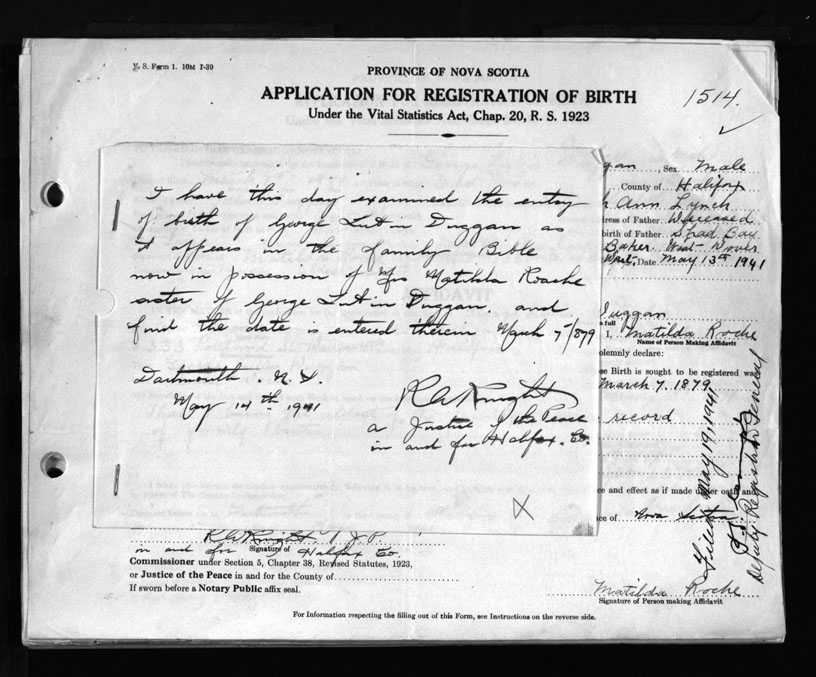 V. S. Form 1. 10M 1-39
PROVINCE OF NOVA SCOTIA
APPLICATION FOR REGISTRATION OF BIRTH
Under the Vital Statistics Act, Chap. 20, R. S. 1923
1514.
I have this day examined the entry
of birth of George Duggan as
it appears in the family Bible
now in possession of Mrs Matilda Roche
sister of George Duggan. and
find the date is entered therein March 7/1879
Dartmouth. N.S.
May 14th 1941
R A Knight
a Justice of the Peace
in and for Halifax. Co.
gan, Sex Male
County of Halifax
Ann Lynch
ress of Father Deceased
birth of Father Shad Bay
Baker
Date May 13th 1941
Duggan
n full
I, Matilda Roche
Name of Person Making Affidavit
olemnly declare:
se Birth is sought to be registered was
March 7. 1879
record
ce and effect as if made under oath and
ce of Nova Scotia
Filed May 19, 1941
Deputy Registrar General
R A Knight J P
in and for Halifax Co.
Signature of
Commissioner under Section 5, Chapter 38, Revised Statutes, 1923,
or Justice of the Peace in and for the County of
If sworn before a Notary Public affix seal.
Matilda Roche
Signature of Person making Affidavit
For Information respecting the filling out of this Form, see Instructions on the reverse side.